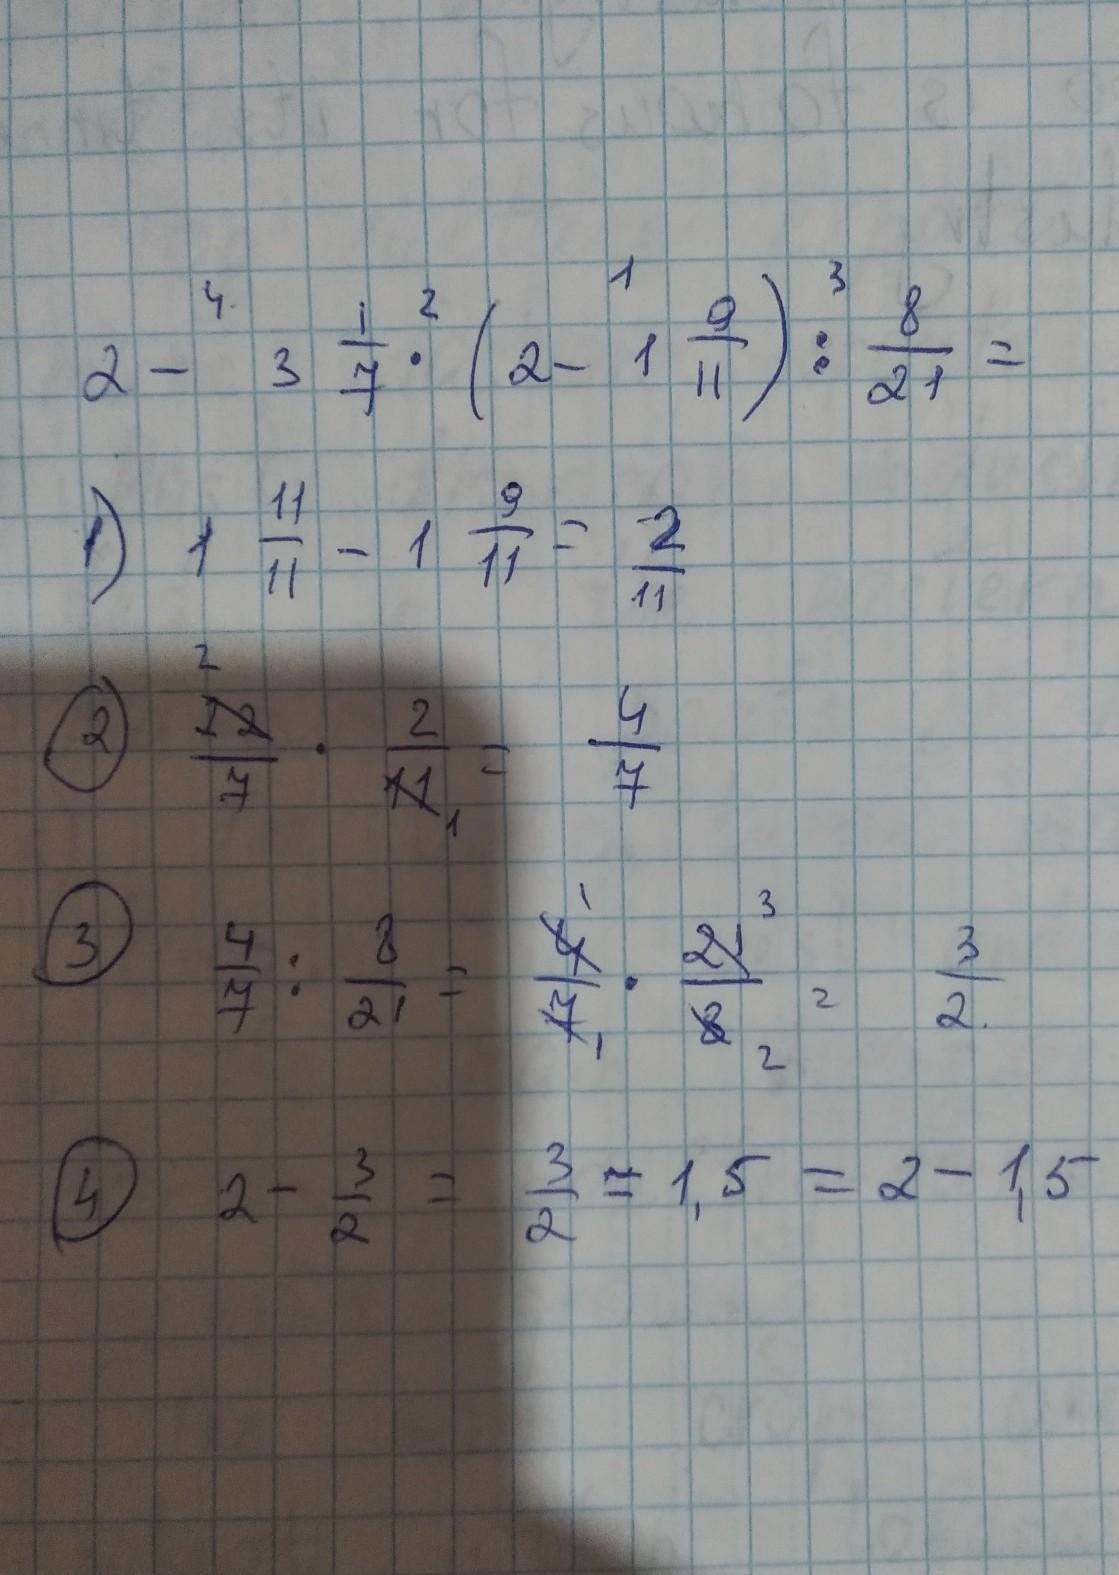 2 - 3 1/7 · (2 - 1 9/11) : 8/21 =
1) 1 11/11 - 1 9/11 = 2/11
2 22/7 · 2/11 1 = 4/7
3 4/7 : 8/21 = 4/7 · 21/8 = 3/2
4 2 - 3/2 = 3/2 = 1,5 = 2 - 1,5